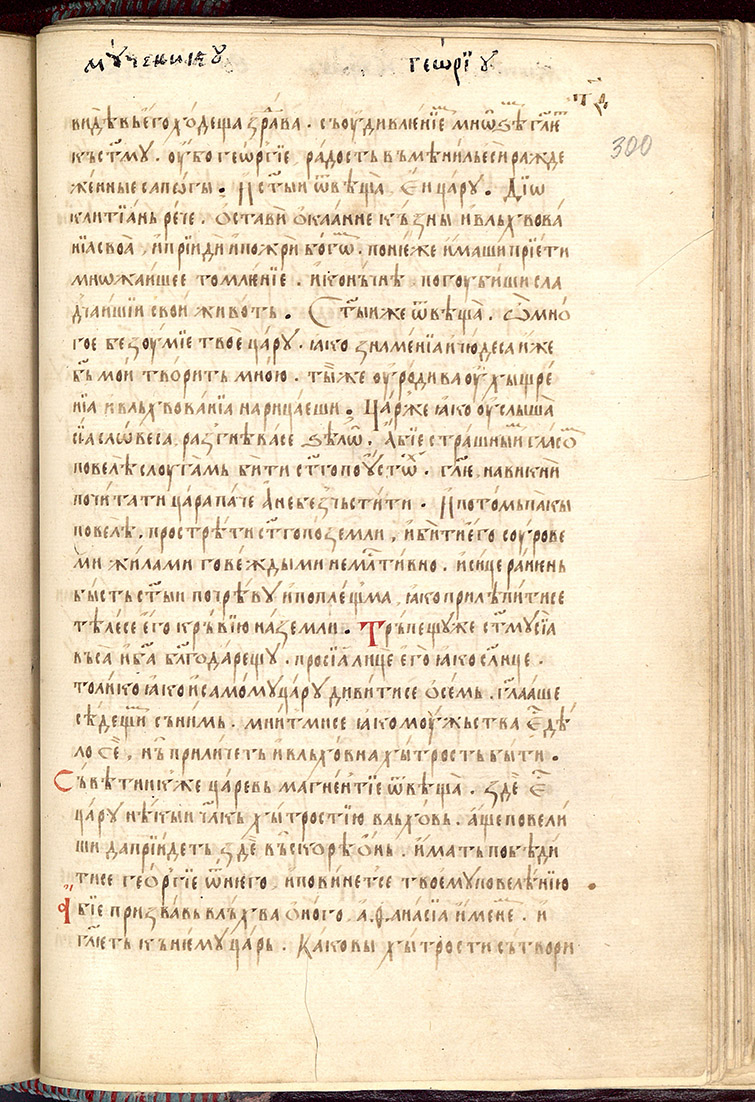 мѹченикѹ георгїѹ
300
видѣвь его ходеща здрава. съ оудивленїемь мнѡзѣмь глть
кь стмѹ. оубо геѡргїе, радость вьмѣнилъ еси ражде
женные сапогы. И стыи ѿвѣща. Еи царѹ. Дїѡ
клитїань рече. остави окаанне кьзны и вльхвова
нїа своа, и прїиди и пожри богѡмь. понеже имаши прїети
мнѡжаишее томленїе. и коньчнѣ погоубиши сла
дчаишїи свои животь. Стыи же ѿвѣща. ѡ мно
гое безоумїе твое царѹ. iако знаменїа и чюдеса иже
бь мои творить мною. ты же оуродива оухыщре
нїа и вльхвованїа нарицаеши. Царже iако оуслыша
сїа словеса, разгнѣвасе ѕѣлѡ. Абїе страшнымь гласомь
повелѣ слоугамь бити стго по оустѡхь. глѥ навикни
почитати цара паче а не безчьстити. И потомь пакы
повелѣ, прострѣти стго по земли, и бити его соурове
ми жилами говеждыми нематївно. и сице ранень
бысть стыи по чрѣвѹ и по плещма, iако прилѣпитисе
тѣлесе его крьвїю на земли. Трьпещѹ же стмѹ сїа
вьса и ба благодарещѹ. просїа лице его iако слнце.
толико iако и самомѹ царѹ дивитисе о семь. глааше
сѣдещимь сь нимь. мнитмисе iако моужьства ѥ дѣ
ло се, нь приличеть и вльховна хытрость быти.
Сьвѣтникже царевь магнентїе ѿвѣща. здѐ ѥ
царѹ нѣкыи члкь хытростїю вльховь. аще повели
ши да прїидеть здѐ вьскорѣ онь. имать побѣди
тисе геѡргїе ѿ него, и повинетсе твоемѹ повелѣнїю
Абїе призвавь вльхва оного. аѳанасїа именемь. и
глѥть кь немѹ царь. Каковы хытрости сьтвори